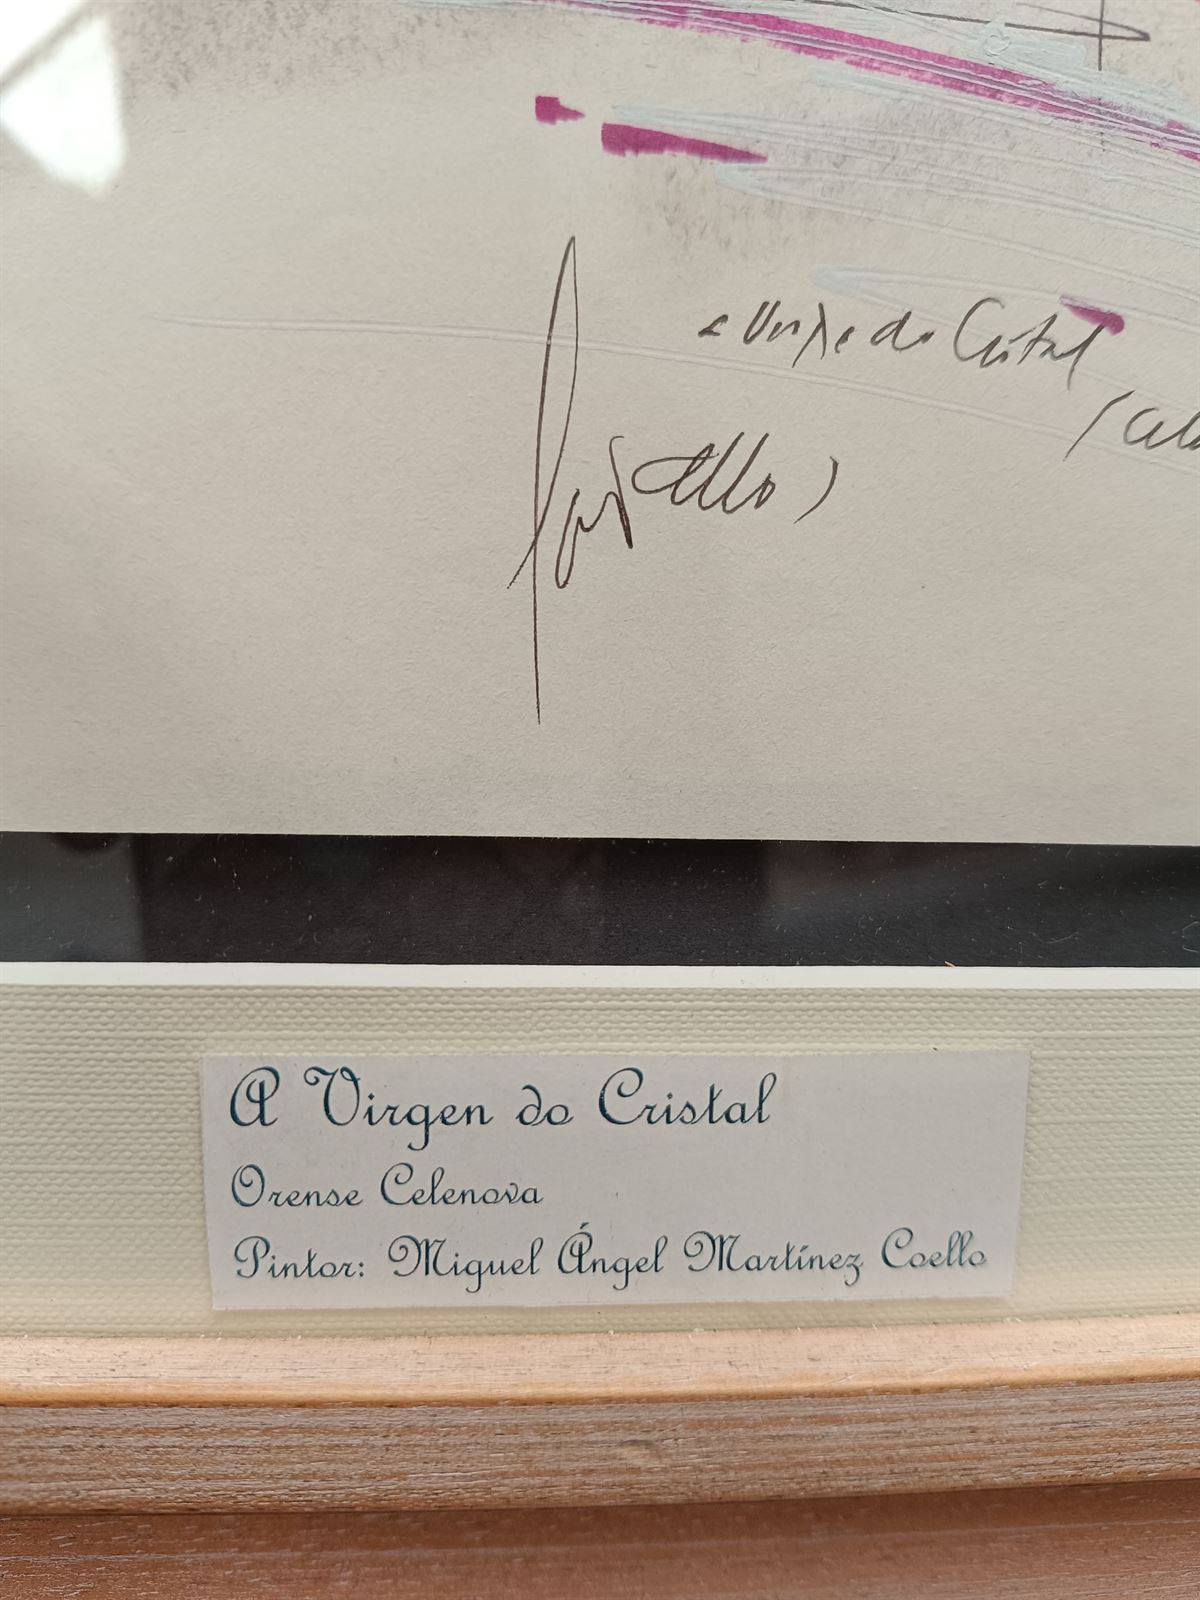 a Virxe do Cristal
Coello
A Virgen do Cristal
Orense Celenova
Pintor: Miguel Ángel Martínez Coello